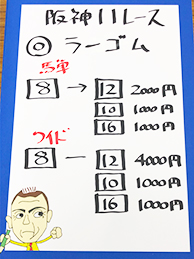 阪神11レース
◎ ラーゴム
馬単
8 → 12 2000円
10 1000円
16 1000円
ワイド
8 － 12 4000円
10 1000円
16 1000円